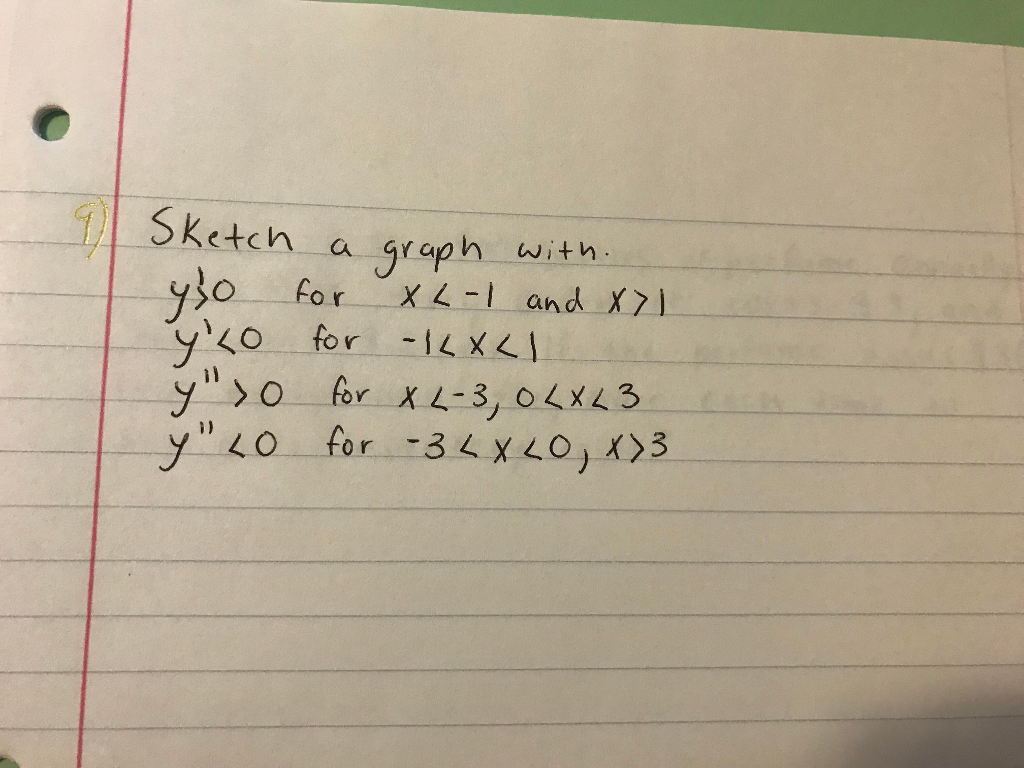 9) Sketch a graph with.
y'>0 for x<-1 and x>1
y'<0 for -1<x<1
y">0 for x<-3, 0<x<3
y"<0 for -3<x<0, x>3